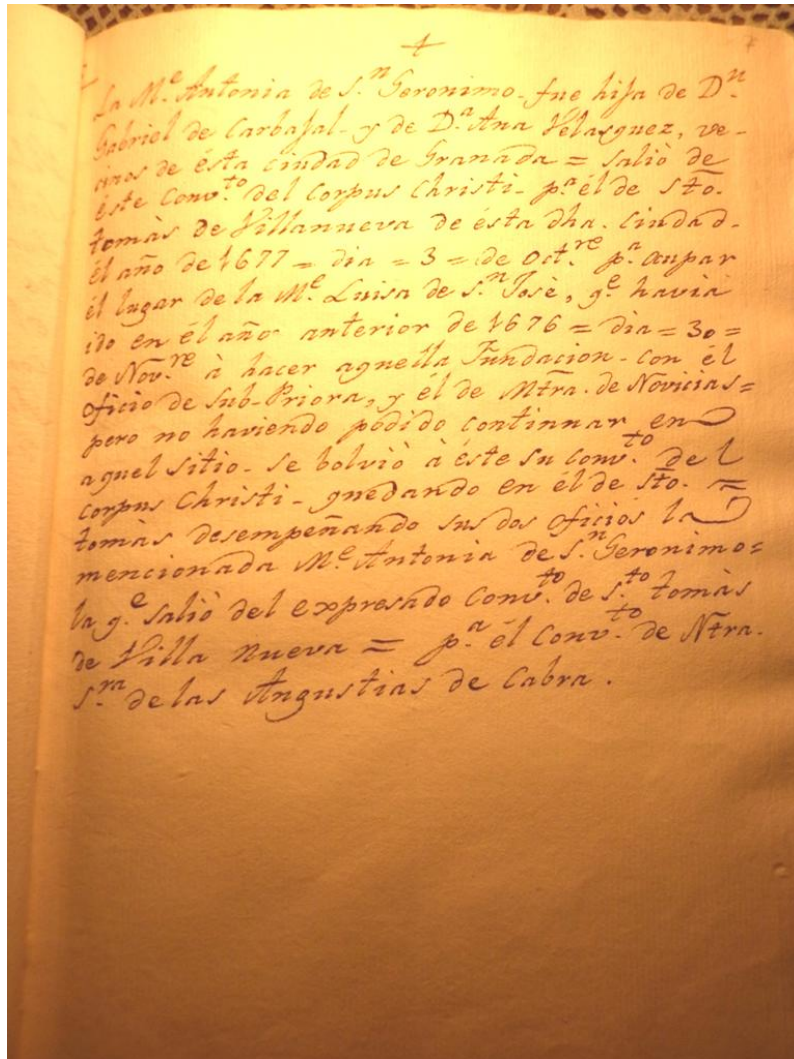 La M.e Antonia de S.n Geronimo- fue hija de D.n
Gabriel de Carbajal- y de D.a Ana Velasquez, ve-
cinos de ésta ciudad de Granada = salió de
éste Conv.to del Corpus Christi- p.a él de Sto.
tomàs de Villanueva de ésta dha. Ciudad-
él año de 1677 = dia = 3 = de Oct.re p.a ocupar
él lugar de la M.e Luisa de S.n Josè, q.e havia
ido en él año anterior de 1676 = dia = 30 =
de Nov.re à hacer aquella Fundacion- con él
oficio de Sub-Priora, y él de Mtra. de Novicias=
pero no haviendo pòdido continuar en
aquel sitio- se bolviò à éste su Conv.to del
Corpus Christi- quedando en él de Sto. =
tomàs desempeñando sus dos oficios la
mencionada M.e Antonia de S.n Geronimo=
la q.e saliò del expresado Conv.to de S.to tomàs
de Villa nueva = p.a él Conv.to de Ntra.
S.ra de las Angustias de Cabra.